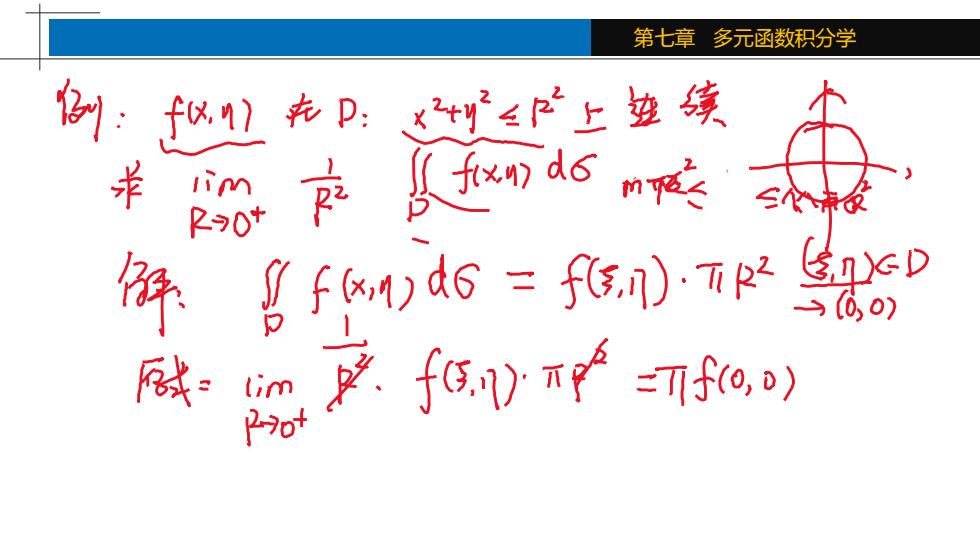 第七章 多元函数积分学
例: f(x,y) 在 D: x²+y² ≤ R² 上 连续,
求 lim R→0⁺ 1/R² ∬_D f(x,y) dσ mπR² ≤ ≤ MπR²
解: ∬_D f(x,y) dσ = f(ξ,η)·πR² (ξ,η)∈D
→(0,0)
原式 = lim R→0⁺ 1/R² · f(ξ,η)·πR² = πf(0,0)